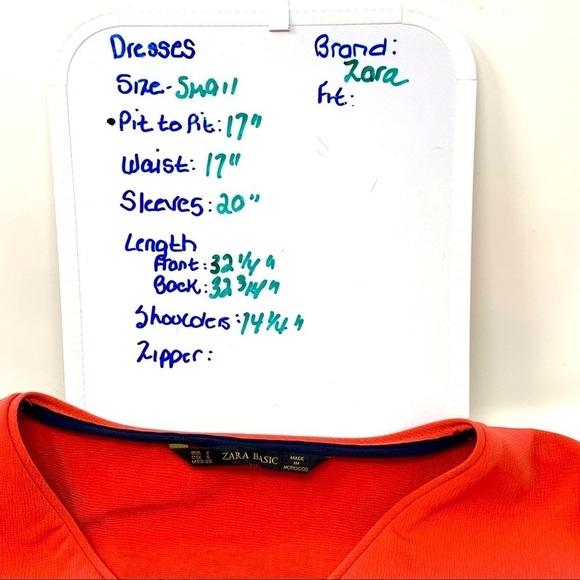 Dresses
Size - Small
• Pit to Pit: 17"
Waist: 17"
Sleeves: 20"
Length
Front: 32 1/4"
Back: 32 3/4"
Shoulders: 14 1/4"
Zipper:
Brand:
Zara
Fit:
ZARA BASIC
MADE
IN
MOROCCO